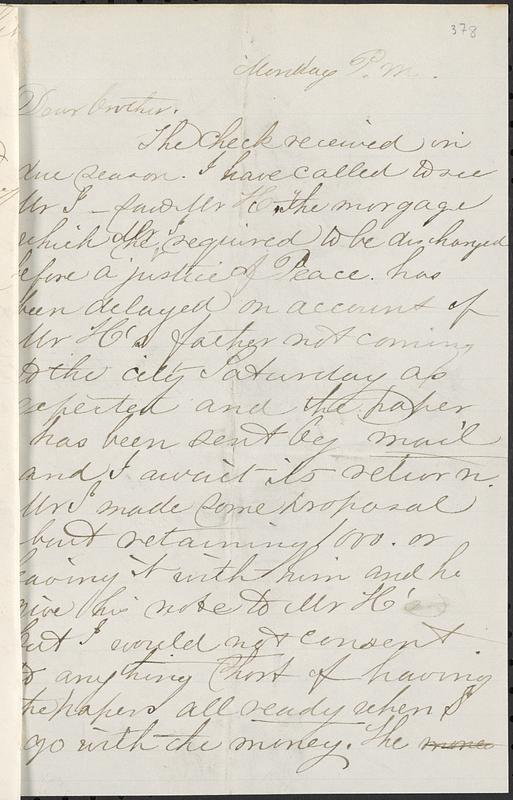 378
Monday P.M.
Dear brother.
The check received in
due season. I have called to see
Mr I - saw Mr H. The morgage
which Mr I required to be discharged
before a justice of Peace. has
been delayed on account of
Mr H's father not coming
to the city Saturday as
expected and the paper
has been sent by mail
and I await its return.
Mr I made some proposal
but retaining 1000. or
leaving it with him and he
give his note to Mr H
but I would not consent
to anything short of having
the papers all ready when I
go with the money. The mone